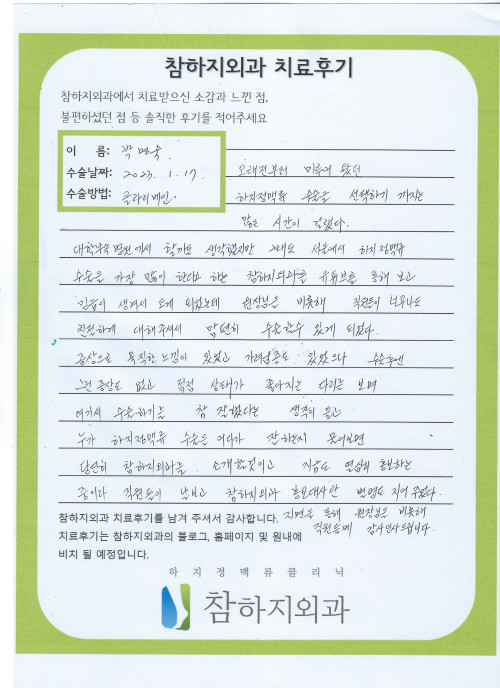 참하지외과 치료후기
참하지외과에서 치료받으신 소감과 느낀 점,
불편하셨던 점 등 솔직한 후기를 적어주세요
이 름: 박
수술날짜: 2023. 1. 17.
수술방법: 클라리베인.
오래전부터 미루어 왔던
하지정맥류 수술을 선택하기 까지는
많은 시간이 걸렸다.
대학부속 병원에서 할까도 생각했지만 그래도 서울에서 하지정맥류
수술을 가장 많이 한다고 하는 참하지외과를 유튜브를 통해 보고
믿음이 생겨서 오게 되었는데 원장님을 비롯해 직원들이 너무나도
친절하게 대해주셔서 맘편히 수술할수 있게 되었다.
증상으로 묵직한 느낌이 있었고 가려움증도 있었으나 수술후엔
그런 증상도 없고 점점 상태가 좋아지는 다리를 보며
여기서 수술하기를 참 잘했다는 생각이 들고
누가 하지정맥류 수술을 어디가 잘하는지 물어보면
당연히 참하지외과를 소개할것이고 지금도 열심히 홍보하는
중이라 직원들이 날보고 참하지외과 홍보대사란 별명도 지어 주셨다.
지면을 통해 원장님을 비롯해
직원들께 감사인사드립니다.
참하지외과 치료후기를 남겨 주셔서 감사합니다.
치료후기는 참하지외과의 블로그, 홈페이지 및 원내에
비치 될 예정입니다.
하지정맥류클리닉
참하지외과